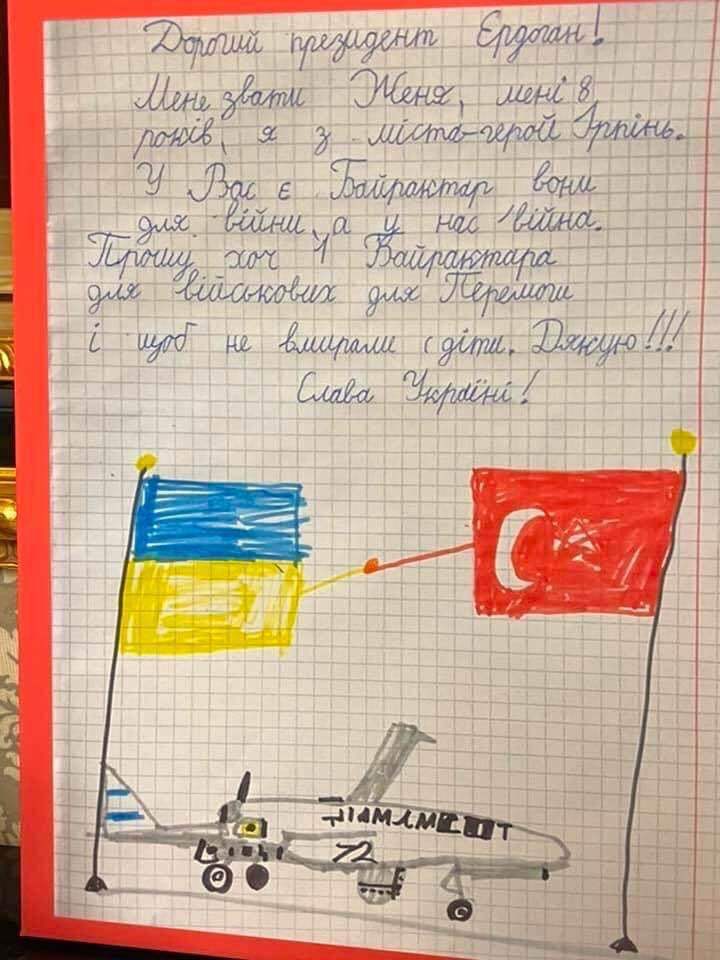 Дорогий президент Єрдоган!
Мене звати Женя, мені 8
років, я з міста-герой Ірпінь.
У Вас є Байрактар вони
для війни, а у нас війна.
Прошу хоч 1 Байрактара
для військових для Перемоги
і щоб не вмирали діти. Дякую!!!
Слава Україні!
72